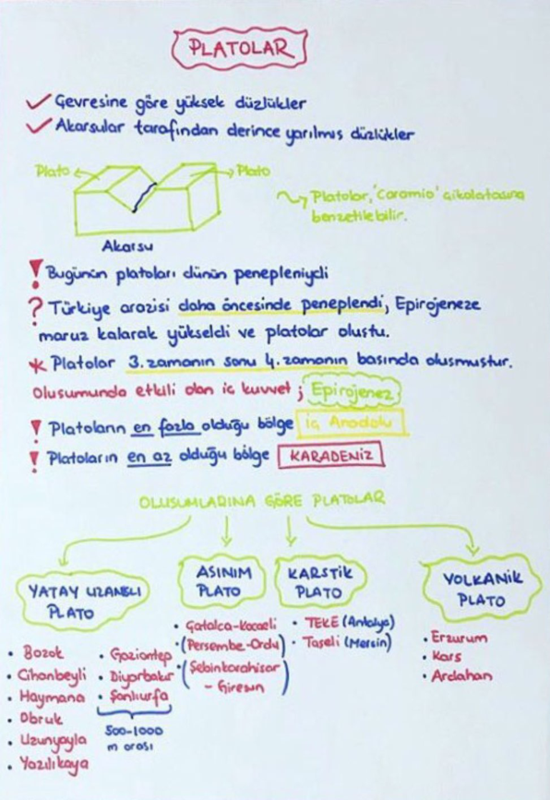 PLATOLAR
✓ Çevresine göre yüksek düzlükler
✓ Akarsular tarafından derince yarılmış düzlükler
Plato
Plato
Akarsu
Platolar, 'Caramio' çikolatasına
benzetilebilir.
! Bugünün platoları dünün penepleniydi
? Türkiye arazisi daha öncesinde peneplendi, Epirojeneze
maruz kalarak yükseldi ve platolar oluştu.
* Platolar 3.zamanın sonu 4.zamanın basında olusmustur.
Olusumunda etkili olan iç kuvvet ; Epirojenez
! Platoların en fazla olduğu bölge İç Anadolu
! Platoların en az olduğu bölge KARADENİZ
OLUSUMLARINA GÖRE PLATOLAR
YATAY UZANSLI
PLATO
• Bozok
• Cihanbeyli
• Haymana
• Obruk
• Uzunyayla
• Yazılıkaya
• Gaziantep
• Diyarbakır
• Şanlıurfa
500-1000
m arası
ASINIM
PLATO
• Çatalca-Kocaeli
• (Persembe-Ordu)
• (Şebinkarahisar
- Giresun)
KARSTİK
PLATO
• TEKE (Antalya)
• Taşeli (Mersin)
VOLKANİK
PLATO
• Erzurum
• Kars
• Ardahan